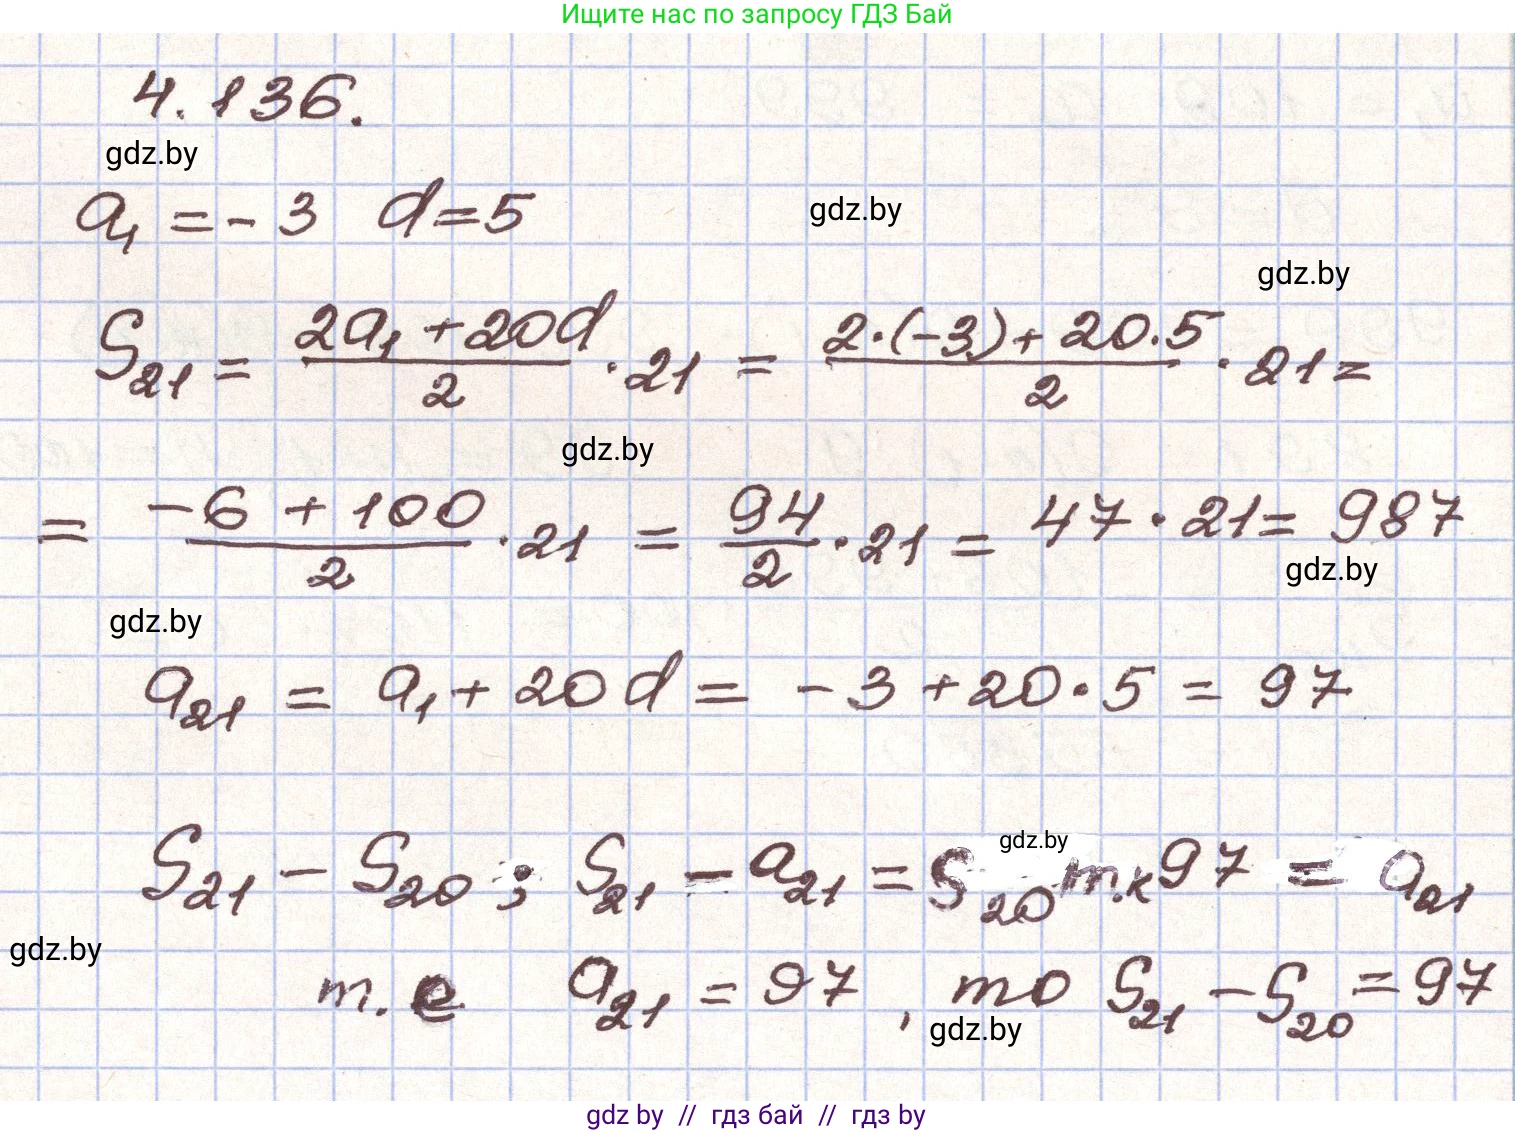 Ищите нас по запросу ГДЗ Бай
4.136.
gdz.by
a₁ = - 3 d = 5
gdz.by
gdz.by
S₂₁ = (2a₁ + 20d)/2 · 21 = (2·(-3) + 20·5)/2 · 21 =
gdz.by
= (-6 + 100)/2 · 21 = 94/2 · 21 = 47 · 21 = 987
gdz.by
gdz.by
a₂₁ = a₁ + 20d = -3 + 20·5 = 97
gdz.by
S₂₁ - S₂₀ ; S₂₁ - a₂₁ = S₂₀ т.к 97 = a₂₁
gdz.by
т.е a₂₁ = 97, то S₂₁ - S₂₀ = 97
gdz.by
gdz by // гдз бай // гдз by